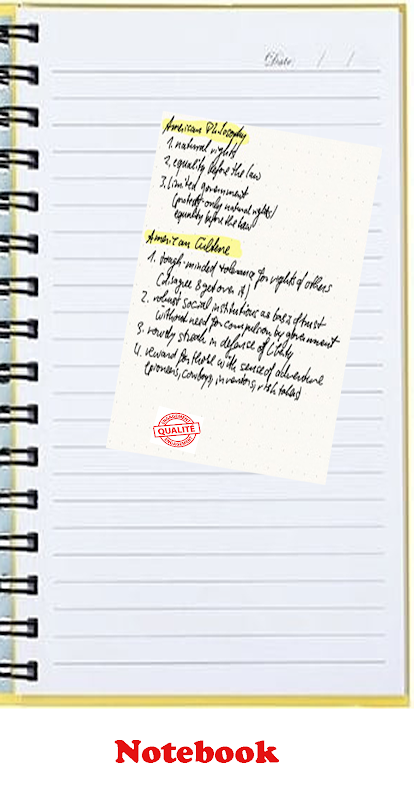 Date: / /
American Philosophy
1. natural rights
2. equality before the law
3. Limited government
(protects only natural rights/
equality before the law)
American Culture
1. tough-minded tolerance for rights of others
(disagree & get over it)
2. robust social institutions as basis of trust
without need for compulsion by government
3. rowdy streak in defense of liberty
4. reward for those with sense of adventure
(pioneers, cowboys, inventors, risk takers)
QUALITÉ
Notebook